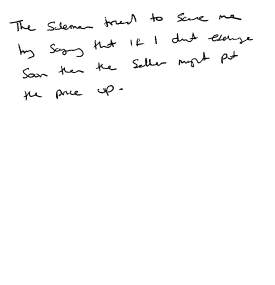 The Salesman tried to scare me
by saying that if I don't exchange
soon then the seller might put
the price up.